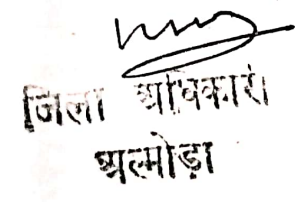 जिला अधिकारी
अल्मोड़ा